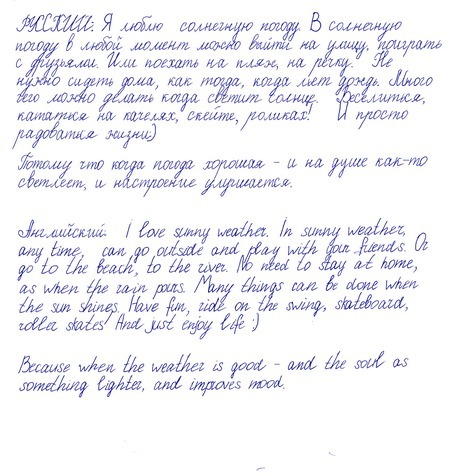 РУССКИЙ: Я люблю солнечную погоду. В солнечную
погоду в любой момент можно выйти на улицу, поиграть
с друзьями. Или поехать на пляж, на речку. Не
нужно сидеть дома, как тогда, когда льет дождь. Много
чего можно делать когда светит солнце. Веселиться,
кататься на качелях, скейте, роликах! И просто
радоваться жизни:)
Потому что когда погода хорошая - и на душе как-то
светлеет, и настроение улучшается.
Английский: I love sunny weather. In sunny weather,
any time, can go outside and play with your friends. Or
go to the beach, to the river. No need to stay at home,
as when the rain pours. Many things can be done when
the sun shines. Have fun, ride on the swing, skateboard,
roller skates! And just enjoy life :)
Because when the weather is good - and the soul as
something lighter, and improves mood.